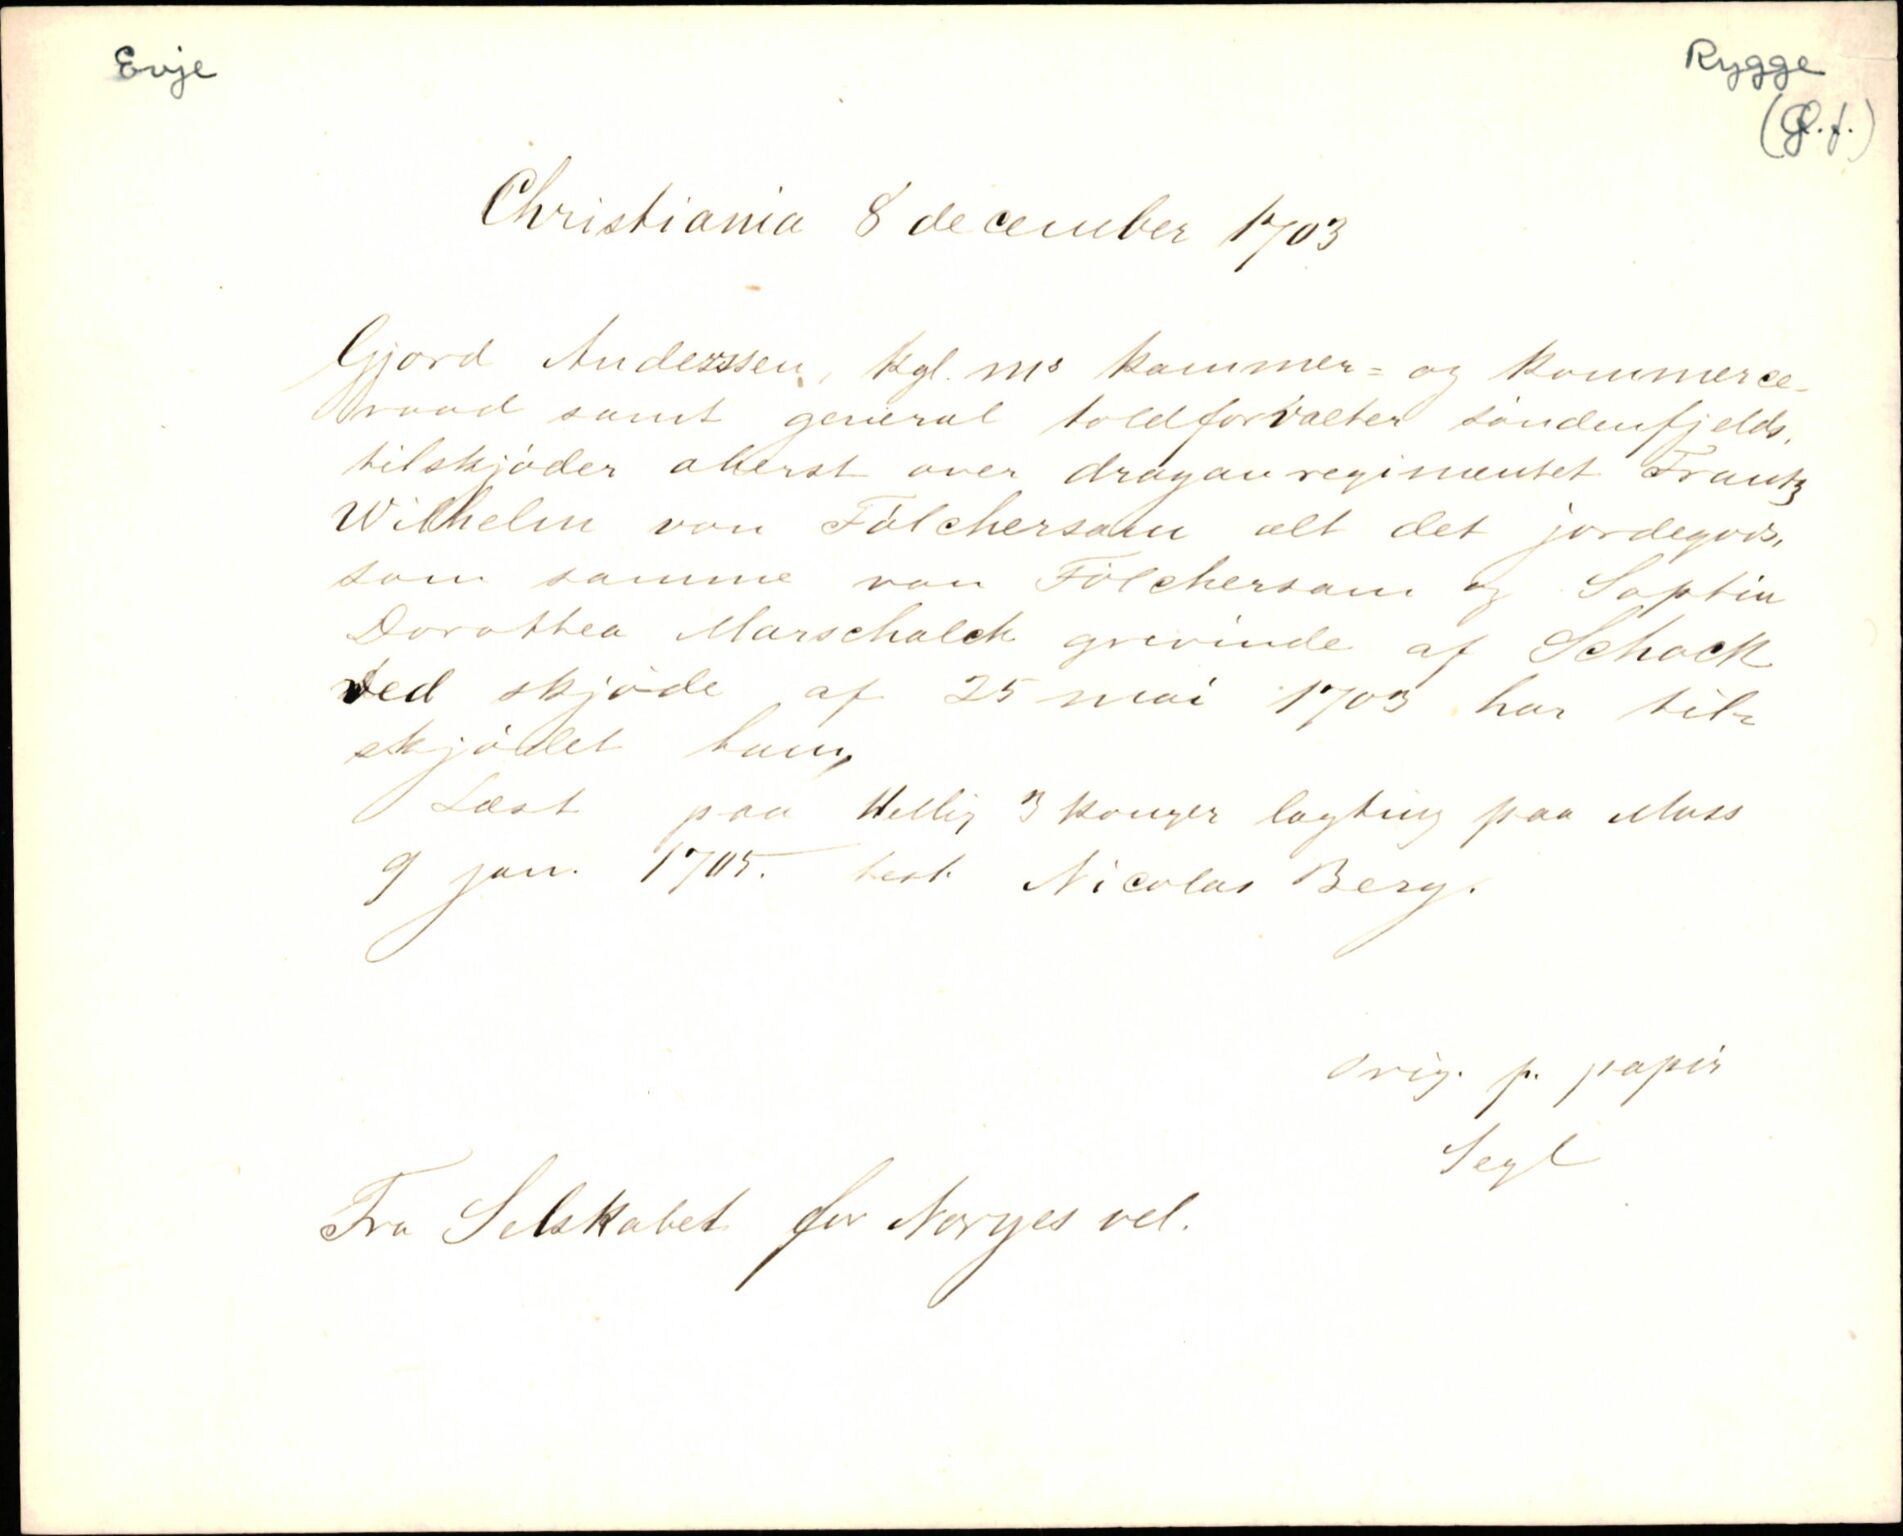 Evje
Rygge
(Ø.f.)
Christiania 8 december 1703
Gjord Anderssen, kgl. ms kammer= og kommerce-
raad samt general toldforvalter søndenfjelds,
tilskjøder oberst over dragonregimentet Frantz
Wilhelm von Følchersam alt det jordegods,
som samme von Følchersam og Sophia
Dorothea Marschalck grevinde af Schack
ved skjøde af 25 mai 1703 har til-
skjødet ham,
Læst paa Hellig 3 konger lagting paa Moss
9 jan. 1705. test. Nicolas Berg.
Orig. p. papir
Segl
Fra Selskabet for Norges vel.